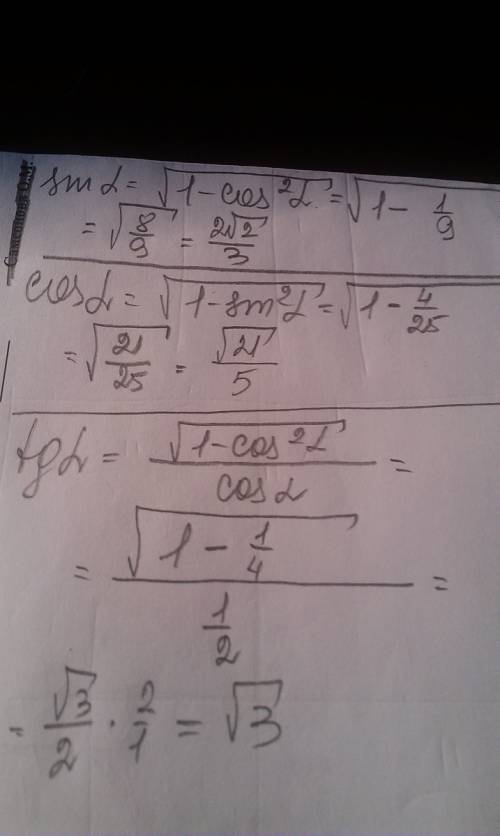 sin α = √(1-cos²α) = √(1 - 1/9)
= √(8/9) = 2√2/3
cos α = √(1-sin²α) = √(1 - 4/25)
= √(21/25) = √21/5
tg α = √(1-cos²α)/cos α =
= √(1 - 1/4)/(1/2) =
= √3/2 · 2/1 = √3